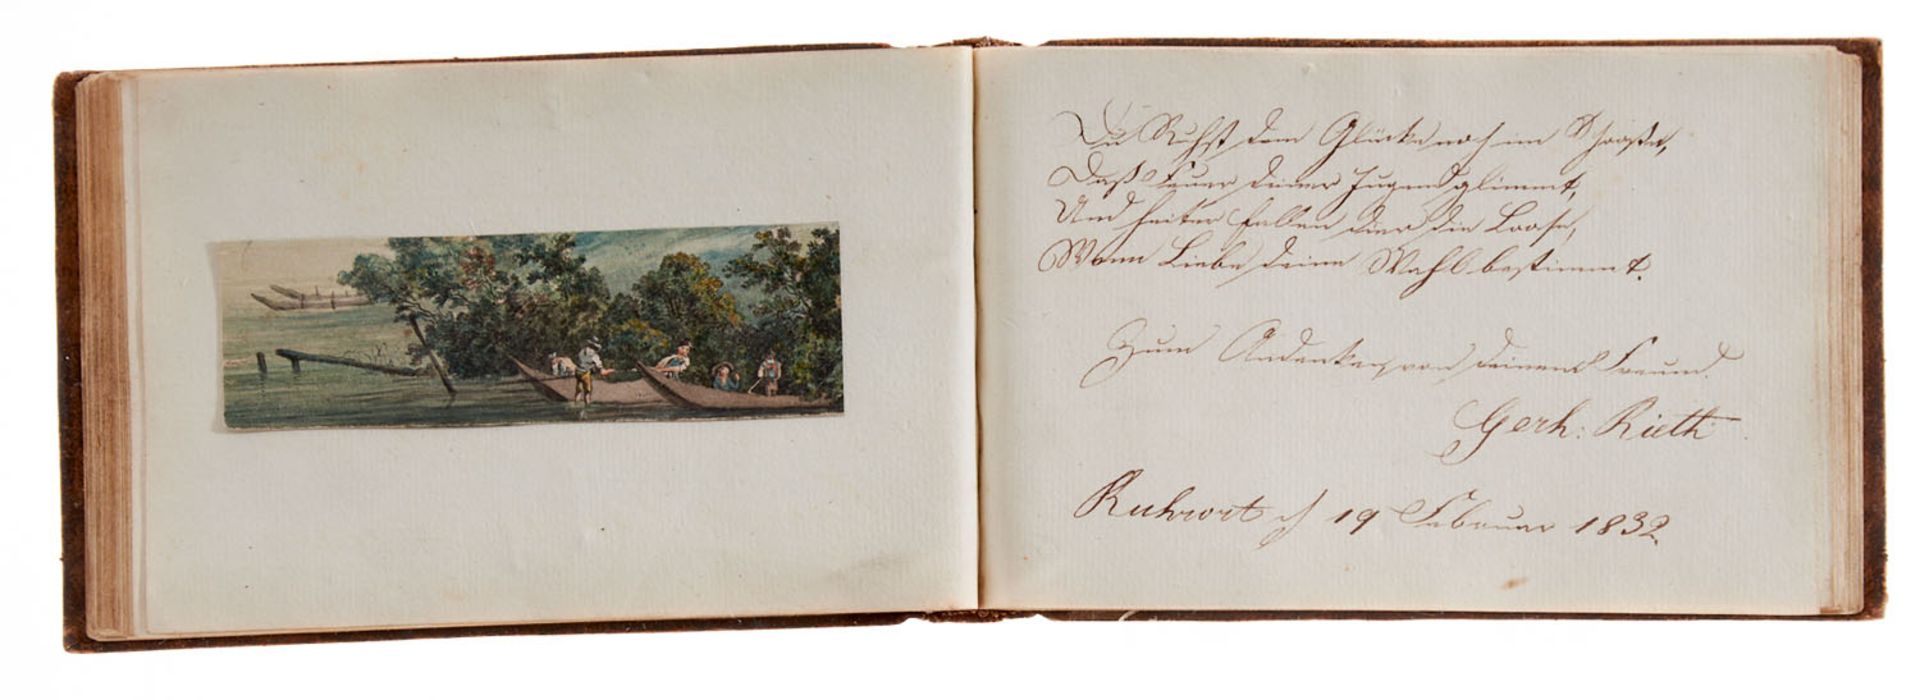 Du Ruhst dem Glücke noch im Schooße,
Daß Feuer deiner Jugend glimmt,
Und heiter fallen dier die Loose,
Wenn Liebe deine Wahl bestimmt.
Zum Andenken von deinem Freund
Gerh: Rieth
Ruhrort 19 Februar 1832.